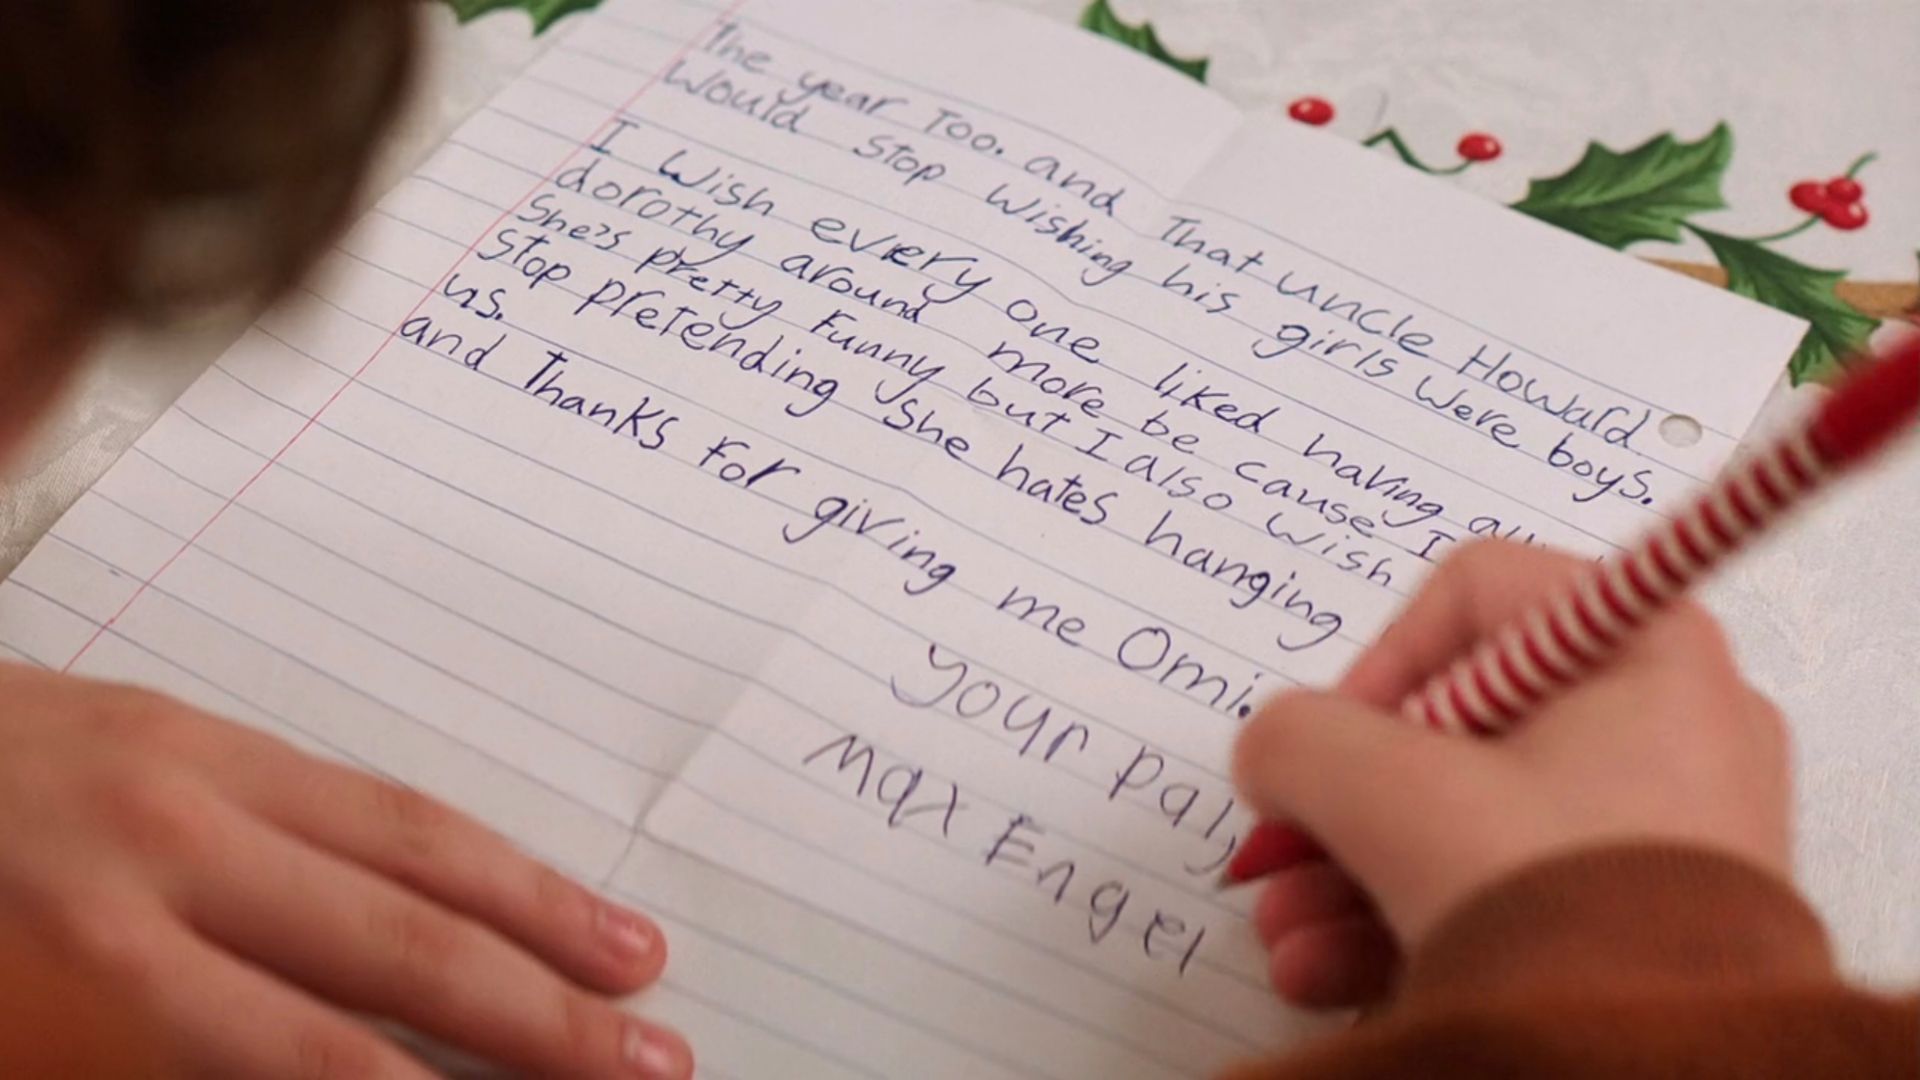 The year Too. and That uncle Howard
Would Stop Wishing his girls were boys.
I Wish every one liked having
dorothy around more be cause I
She's pretty Funny but I also wish
Stop pretending She hates hanging
us.
and Thanks For giving me Omi.
your pal,
Max Engel